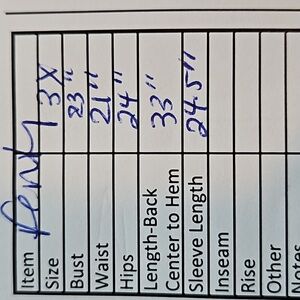 Item
Size 3X
Bust 23"
Waist 21"
Hips 24"
Length-Back
Center to Hem 33"
Sleeve Length 24.5"
Inseam
Rise
Other
Notes